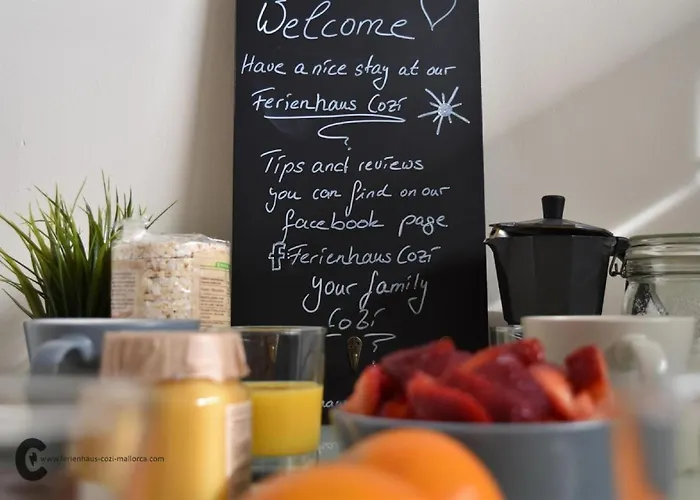 Welcome
Have a nice stay at our
Ferienhaus Cozi
Tips and reviews
you can find on our
facebook page
f:Ferienhaus Cozi
your family
Cobi
www.ferienhaus-cozi-mallorca.com